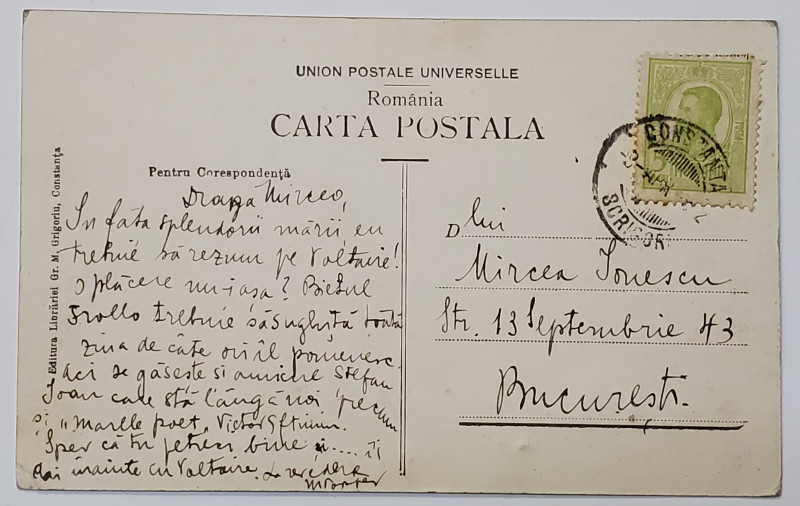 UNION POSTALE UNIVERSELLE
România
CARTA POSTALA
Pentru Corespondență
Editura Librăriei Gr. M. Grigoriu, Constanța
CONSTANȚA
SCRISORI
Draga Mircea,
In fața splendorii mării eu
trebuie să rezum pe Voltaire!
O plăcere nu-i așa? Bietul
Frollo trebuie să sughiță toată
ziua de câte ori îl pomenesc.
Aci se găsește si amicul Stefan
Ioan care stă lângă noi precum
și "marele poet" Victor Eftimiu.
Sper că tu petreci bine și .... îi
dai înainte cu Voltaire. La revedere
D lui
Mircea Ionescu
Str. 13 Septembrie 43
București.